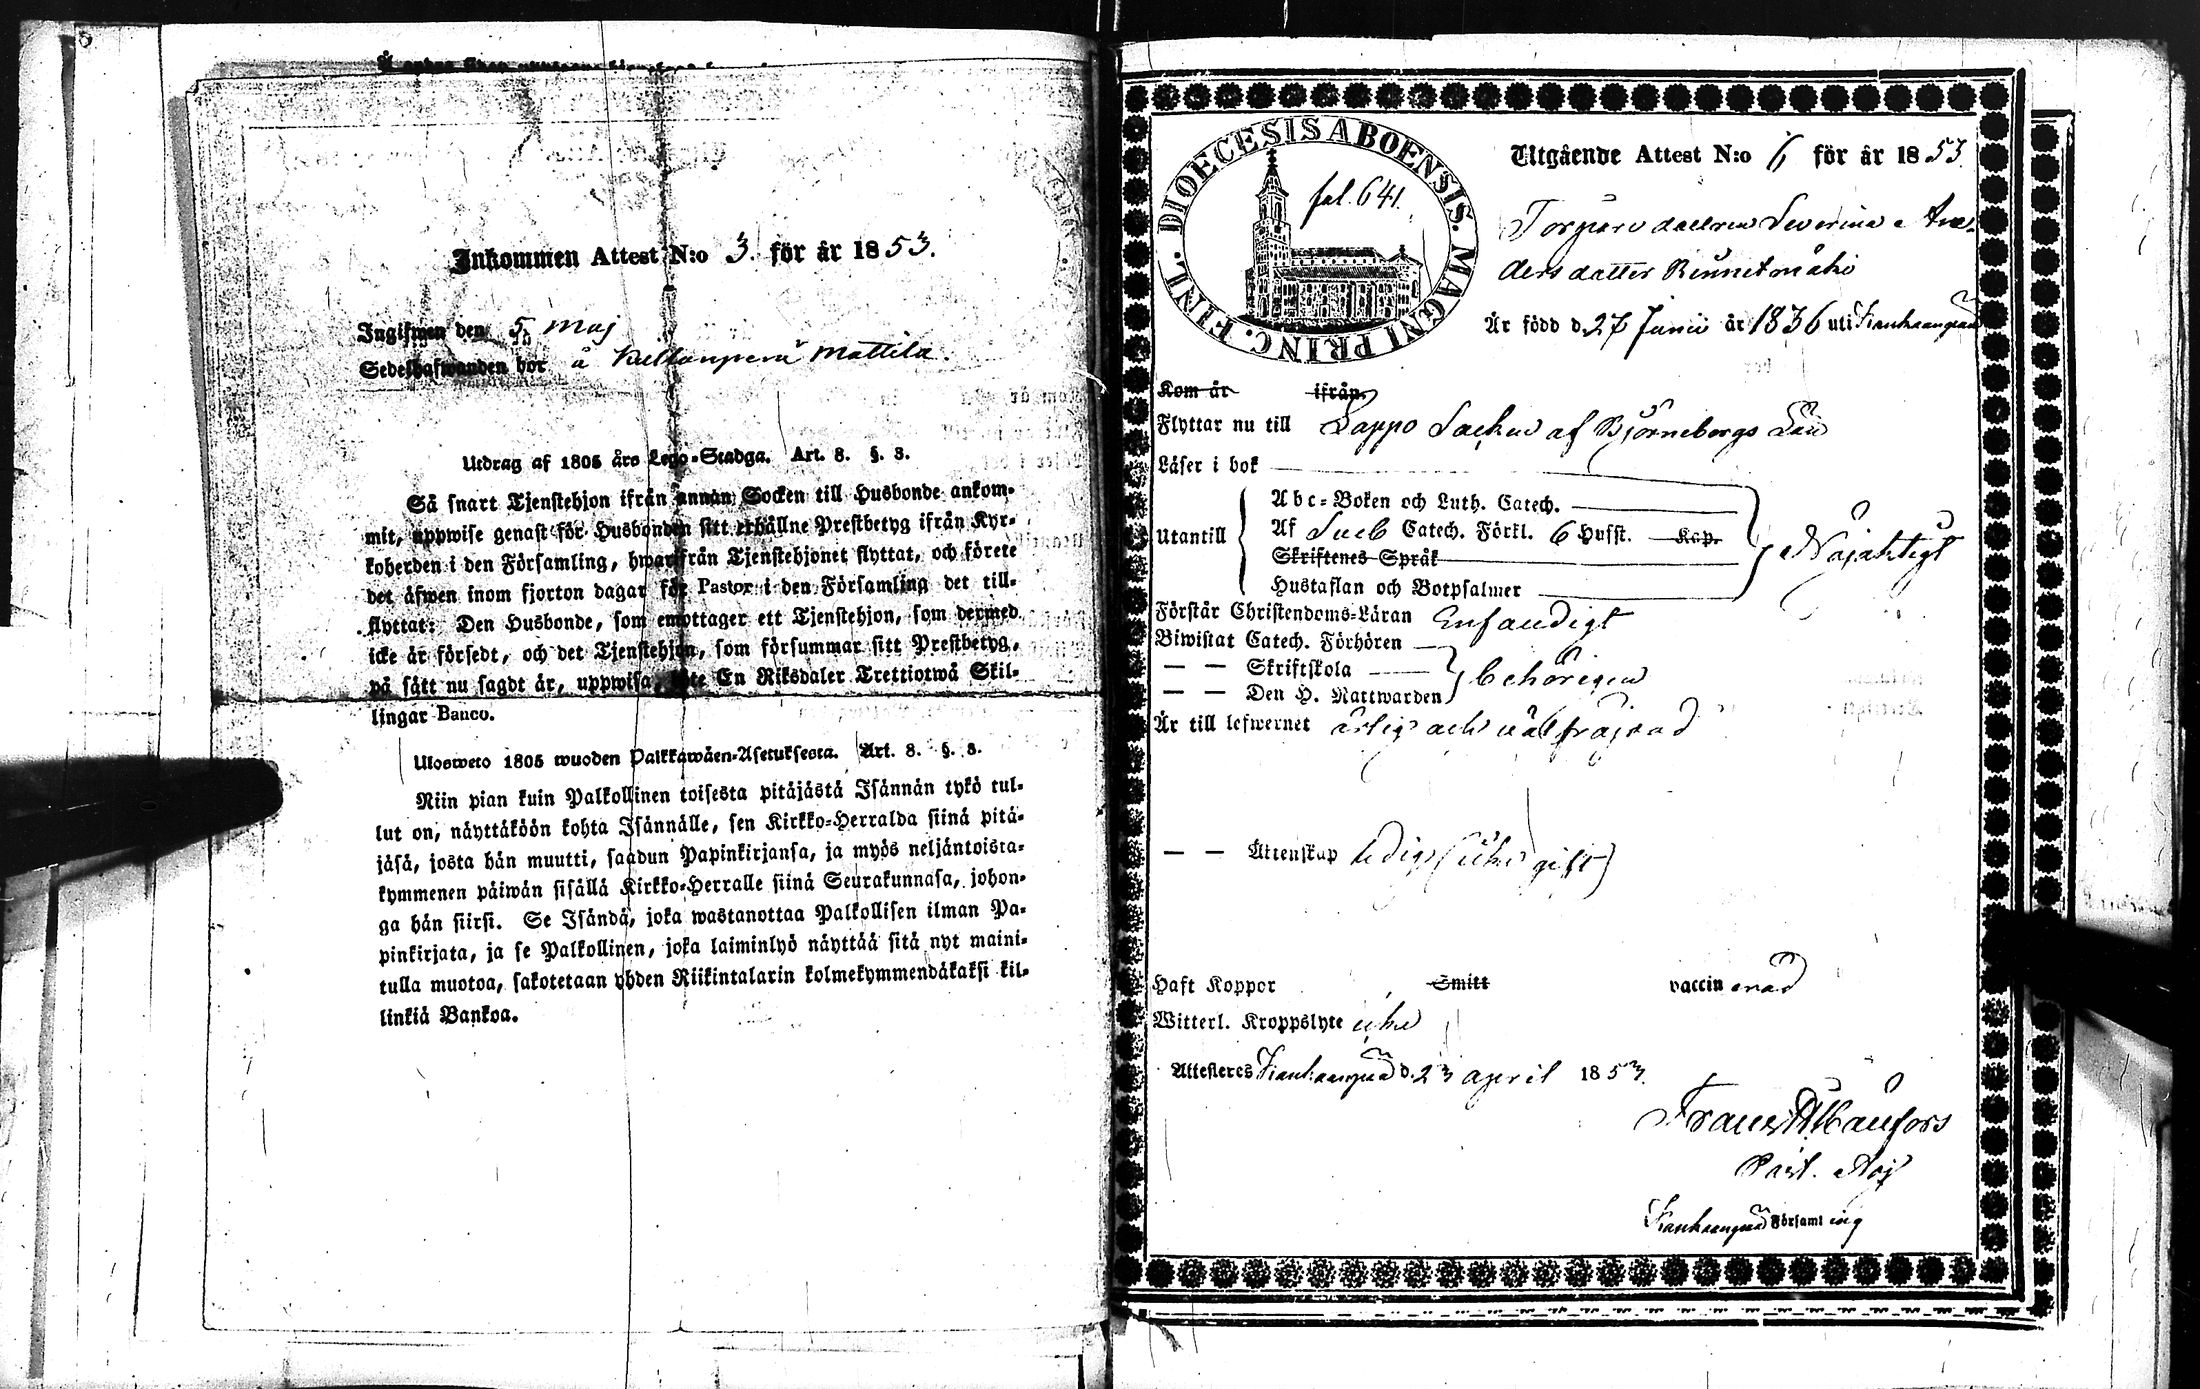 Inkommen Attest N:o 3. för år 1853.
Ingifwen den 5 maj
Sedelhafwanden bor å Kullanperä Mattila.
Utdrag af 1805 års Lego-Stadga. Art. 8. §. 3.
Så snart Tjenstehjon ifrån annan Socken till Husbonde ankom-
mit, uppwise genast för Husbonden sitt erhållne Prestbetyg ifrån Kyr-
koherden i den Församling, hwarifrån Tjenstehjonet flyttat, och förete
det äfwen inom fjorton dagar för Pastor i den Församling det till-
flyttat: Den Husbonde, som emottager ett Tjenstehjon, som dermed
icke är försedt, och det Tjenstehjon, som försummar sitt Prestbetyg,
på sätt nu sagdt är, uppwisa, böte En Riksdaler Trettiotwå Skil-
lingar Banco.
Ulosweto 1805 wuoden Palkkawäen-Asetuksesta. Art. 8. §. 3.
Niin pian kuin Palkollinen toisesta pitäjästä Isännän tykö tul-
lut on, näyttäköön kohta Isännälle, sen Kirkko-Herralda siinä pitä-
jäsä, josta hän muutti, saadun Papinkirjansa, ja myös neljäntoista-
kymmenen päiwän sisällä Kirkko-Herralle siinä Seurakunnasa, johon-
ga hän siirsi. Se Isändä, joka wastanottaa Palkollisen ilman Pa-
pinkirjata, ja se Palkollinen, joka laiminlyö näyttää sitä nyt maini-
tulla muotoa, sakotetaan yhden Riikintalarin kolmekymmendäkaksi kil-
linkiä Bankoa.
DIOECESIS ABOENSIS. MAGNI PRINC. FINL.
fol. 641.
Utgående Attest N:o 6 för år 1853.
Torpare dottren Severina An-
dersdotter
Är född d. 27 Junii år 1836 uti Kankaanpää
Kom år ifrån
Flyttar nu till Lappo Socken af Björneborgs Län
Läser i bok
Utantill
Abc-Boken och Luth. Catech.
Af Sveb Catech. Förkl. 6 Hufst. Kap.
Skriftenes Språk
Hustaflan och Botpsalmer
Nöjaktigt
Förstår Christendoms-Läran Enfaldigt
Biwistat Catech. Förhören
— — Skriftskola
— — Den H. Nattwarden
behörigen
Är till lefwernet ärlig och väl fräjdad
— — Ättenskap ledig (icke gift)
Haft Koppor Smitt vaccinerad
Witterl. Kroppslyte icke
Attesteres Kankaanpää d. 23 april 1853.
Past. Adj
Kankaanpää Församling